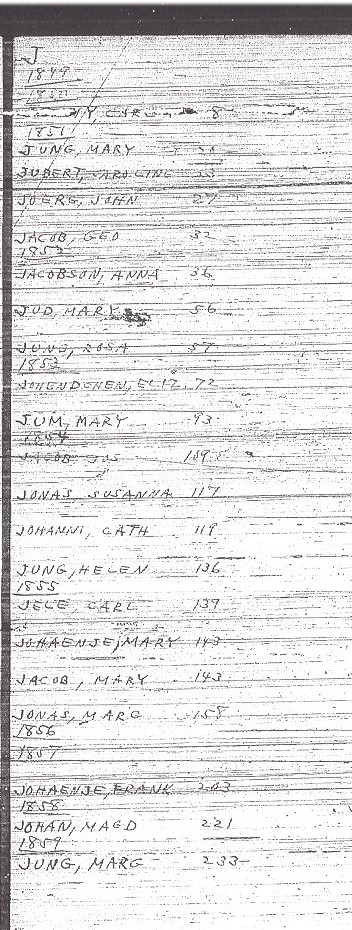 J
1849
1850
CARO 8
1851
JUNG, MARY
JUBERT, CAROLINE 23
JOERG, JOHN 27
JACOB, GEO 32
1952
JACOBSON, ANNA 36
JUD, MARY 56
JUNG, ROSA 57
1853
JOHENDCHEN, ELIZ. 72
JUM, MARY 93
1854
JACOB, JOS 109
JONAS SUSANNA 117
JOHANNI, CATH 119
JUNG, HELEN 136
1855
JELE, CARL 139
JOHAENJE, MARY 143
JACOB, MARY 143
JONAS, MARG 158
1856
1857
JOHAENJE, FRANK 203
1858
JOHAN, MAGD 221
1859
JUNG, MARG 233